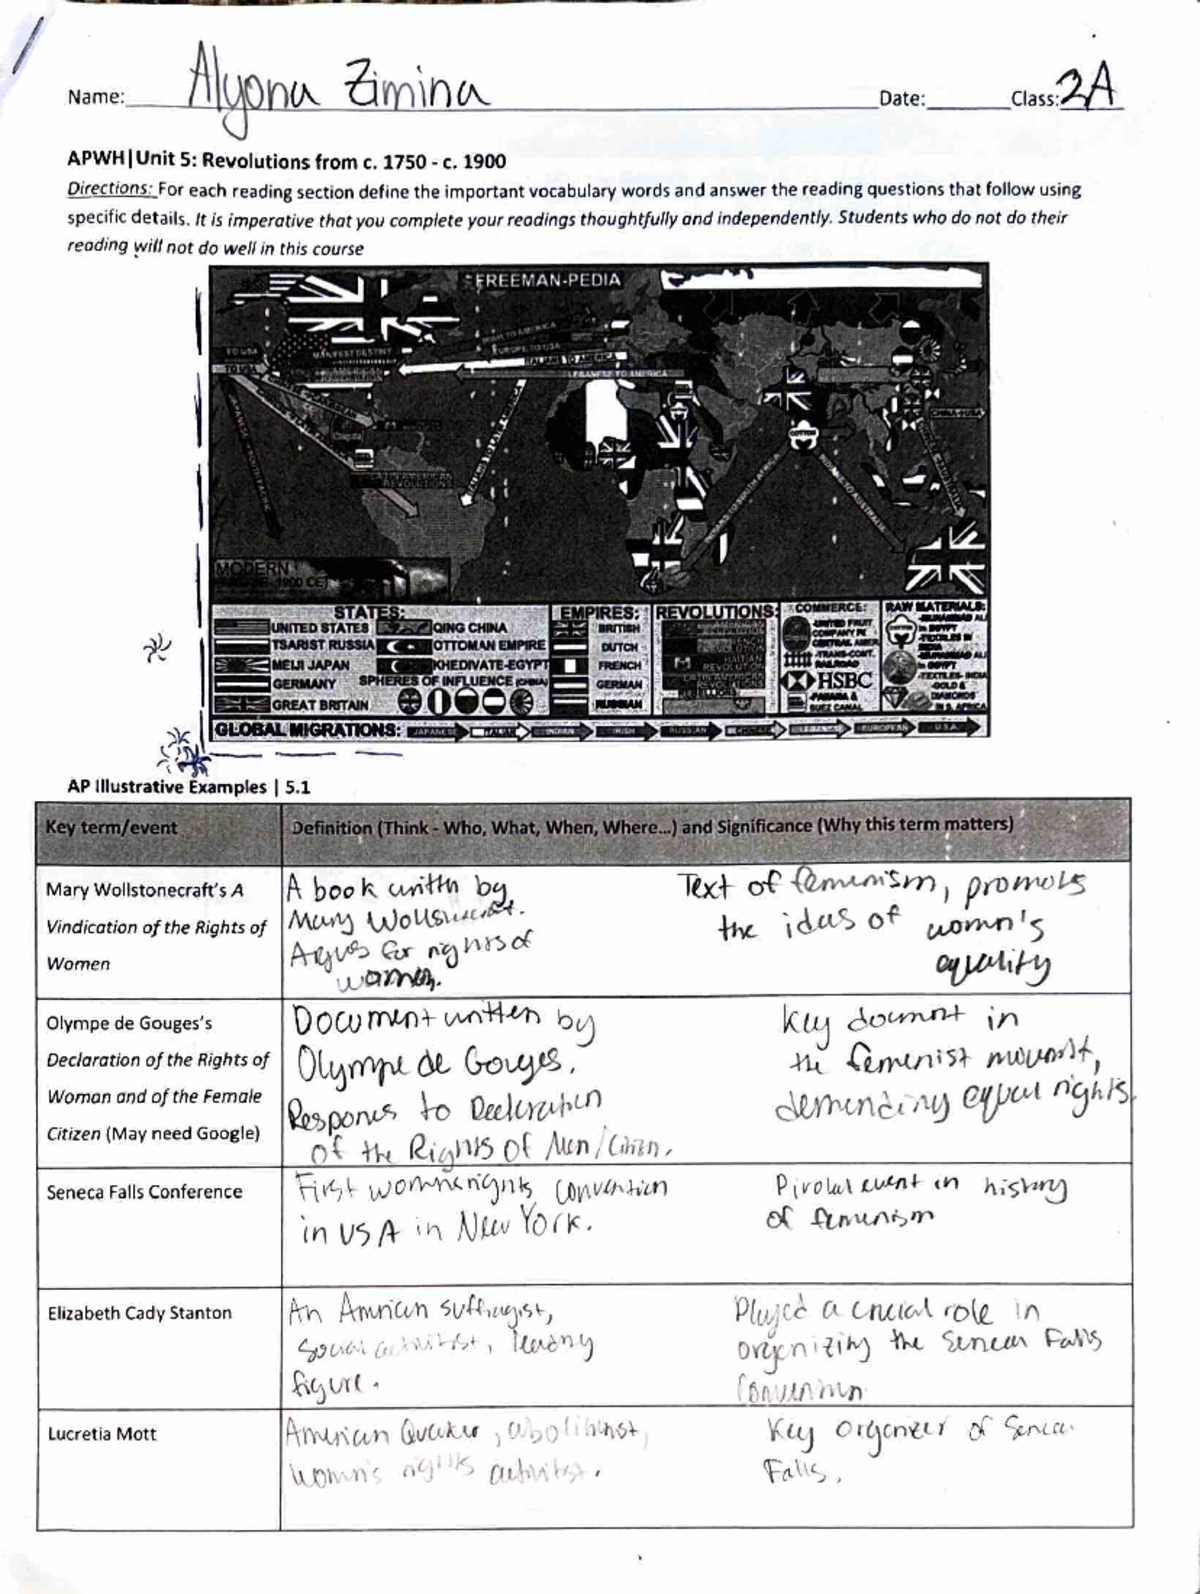 Name: Alyona Zimina Date: Class: 2A
APWH|Unit 5: Revolutions from c. 1750 - c. 1900
Directions: For each reading section define the important vocabulary words and answer the reading questions that follow using
specific details. It is imperative that you complete your readings thoughtfully and independently. Students who do not do their
reading will not do well in this course
FREEMAN-PEDIA
TO USA
MANIFEST DESTINY
TO USA
ITALIANS TO AMERICA
LEBANESE TO AMERICA
COTTON
INDIANS TO SOUTH AFRICA
INDIANS TO AUSTRALIA
MODERN
STATES:
UNITED STATES
TSARIST RUSSIA
MEIJI JAPAN
GERMANY
GREAT BRITAIN
QING CHINA
OTTOMAN EMPIRE
KHEDIVATE-EGYPT
SPHERES OF INFLUENCE (CHINA)
EMPIRES:
BRITISH
DUTCH
FRENCH
GERMAN
RUSSIAN
REVOLUTIONS:
HAITIAN
REVOLUTION
COMMERCE:
UNITED FRUIT
COMPANY IN
CENTRAL AMER
TRANS-CONT.
RAILROAD
HSBC
PANAMA &
SUEZ CANAL
RAW MATERIALS:
GLOBAL MIGRATIONS: JAPANESE ITALIAN INDIAN IRISH RUSSIAN CHINESE LEBANESE EUROPEAN U.S.A
AP Illustrative Examples | 5.1
Key term/event Definition (Think - Who, What, When, Where...) and Significance (Why this term matters)
Mary Wollstonecraft's A
Vindication of the Rights of
Women
A book writtn by
Mary
Argues for rights of
women.
Text of femenism, promots
the ideas of womn's
equality
Olympe de Gouges's
Declaration of the Rights of
Woman and of the Female
Citizen (May need Google)
Document written by
Olympe de Gouges.
Respones to Decleration
of the Rights of Men/Citizn.
Key documnt in
the femenist movemnt,
demending equal rights.
Seneca Falls Conference
First womne rights convention
in USA in New York.
Pivotal event in history
of femenism
Elizabeth Cady Stanton
An Amrican suffragist,
social activitist, leading
figure.
Played a crucial role in
orgenizing the Senecar Falls
Convention
Lucretia Mott
American Quaker, abolitinist,
womn's rights activitst.
Key orgenizer of Seneca
Falls.